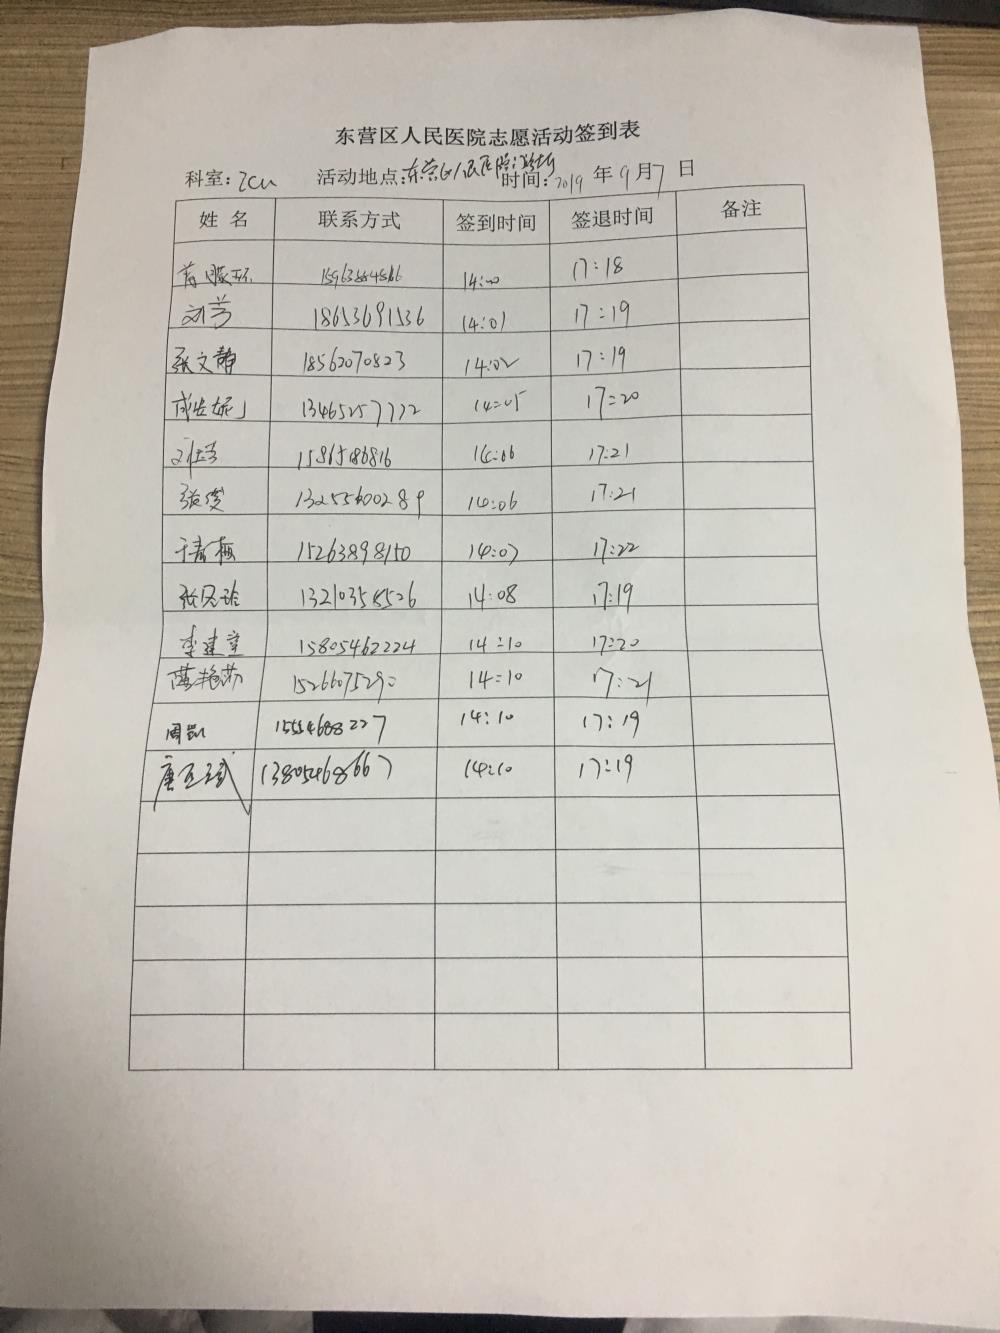 东营区人民医院志愿活动签到表
科室: ICU 活动地点: 东营区人民医院 时间: 2019 年 9 月 7 日
姓 名 联系方式 签到时间 签退时间 备注
14:00 17:18
刘芳 18653691536 14:01 17:19
张文静 18562070823 14:02 17:19
13465257772 14:05 17:20
1586186816 14:06 17:21
张俊 13255600289 14:06 17:21
于春梅 15263898150 14:07 17:22
13210358526 14:08 17:19
李建宝 15805462224 14:10 17:20
薄艳茹 1526607529 14:10 17:21
周凯 15554688227 14:10 17:19
唐玉斌 13805468667 14:10 17:19